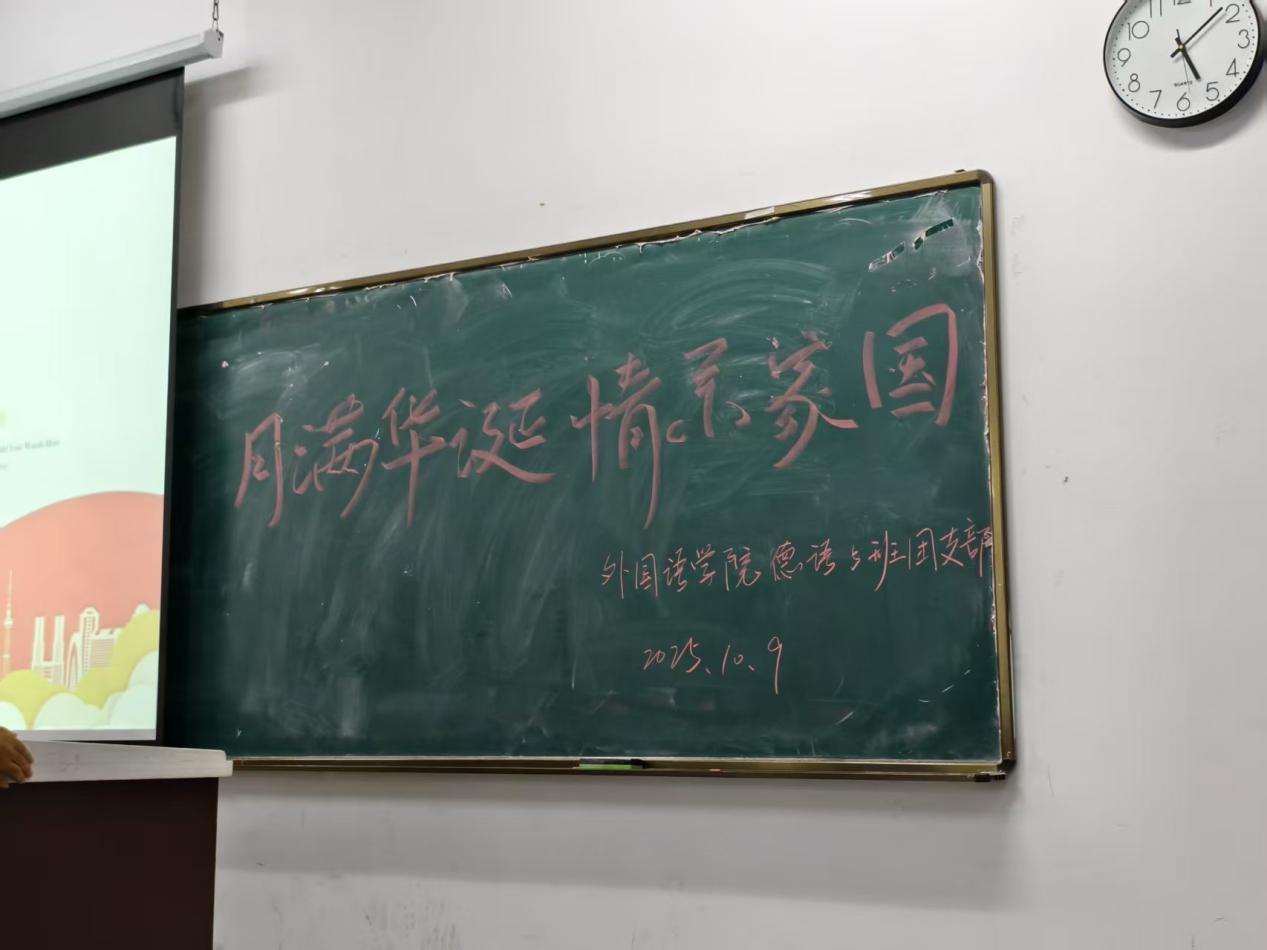 月满华诞 情系家国
外国语学院德语5班团支部
2025.10.9
11 12 2 3 4 5 6 7 8 9 10
QUARTZ